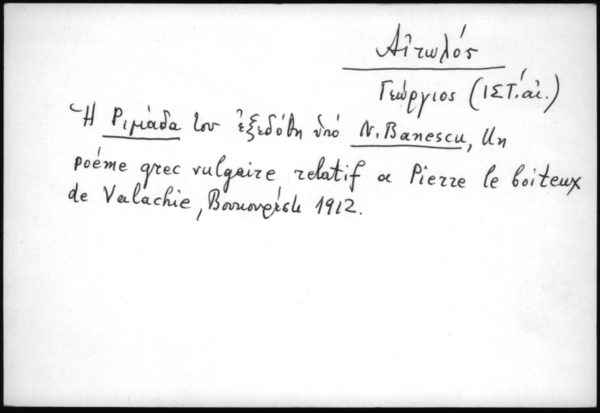 Αἰτωλός
Γεώργιος (ΙΣΤ.´αἰ.)
Ἡ Ριμάδα του ἐξεδόθη ὑπό N. Banescu, Un
poéme grec vulgaire relatif a Pierre le boiteux
de Valachie, Βουκουρέστι 1912.